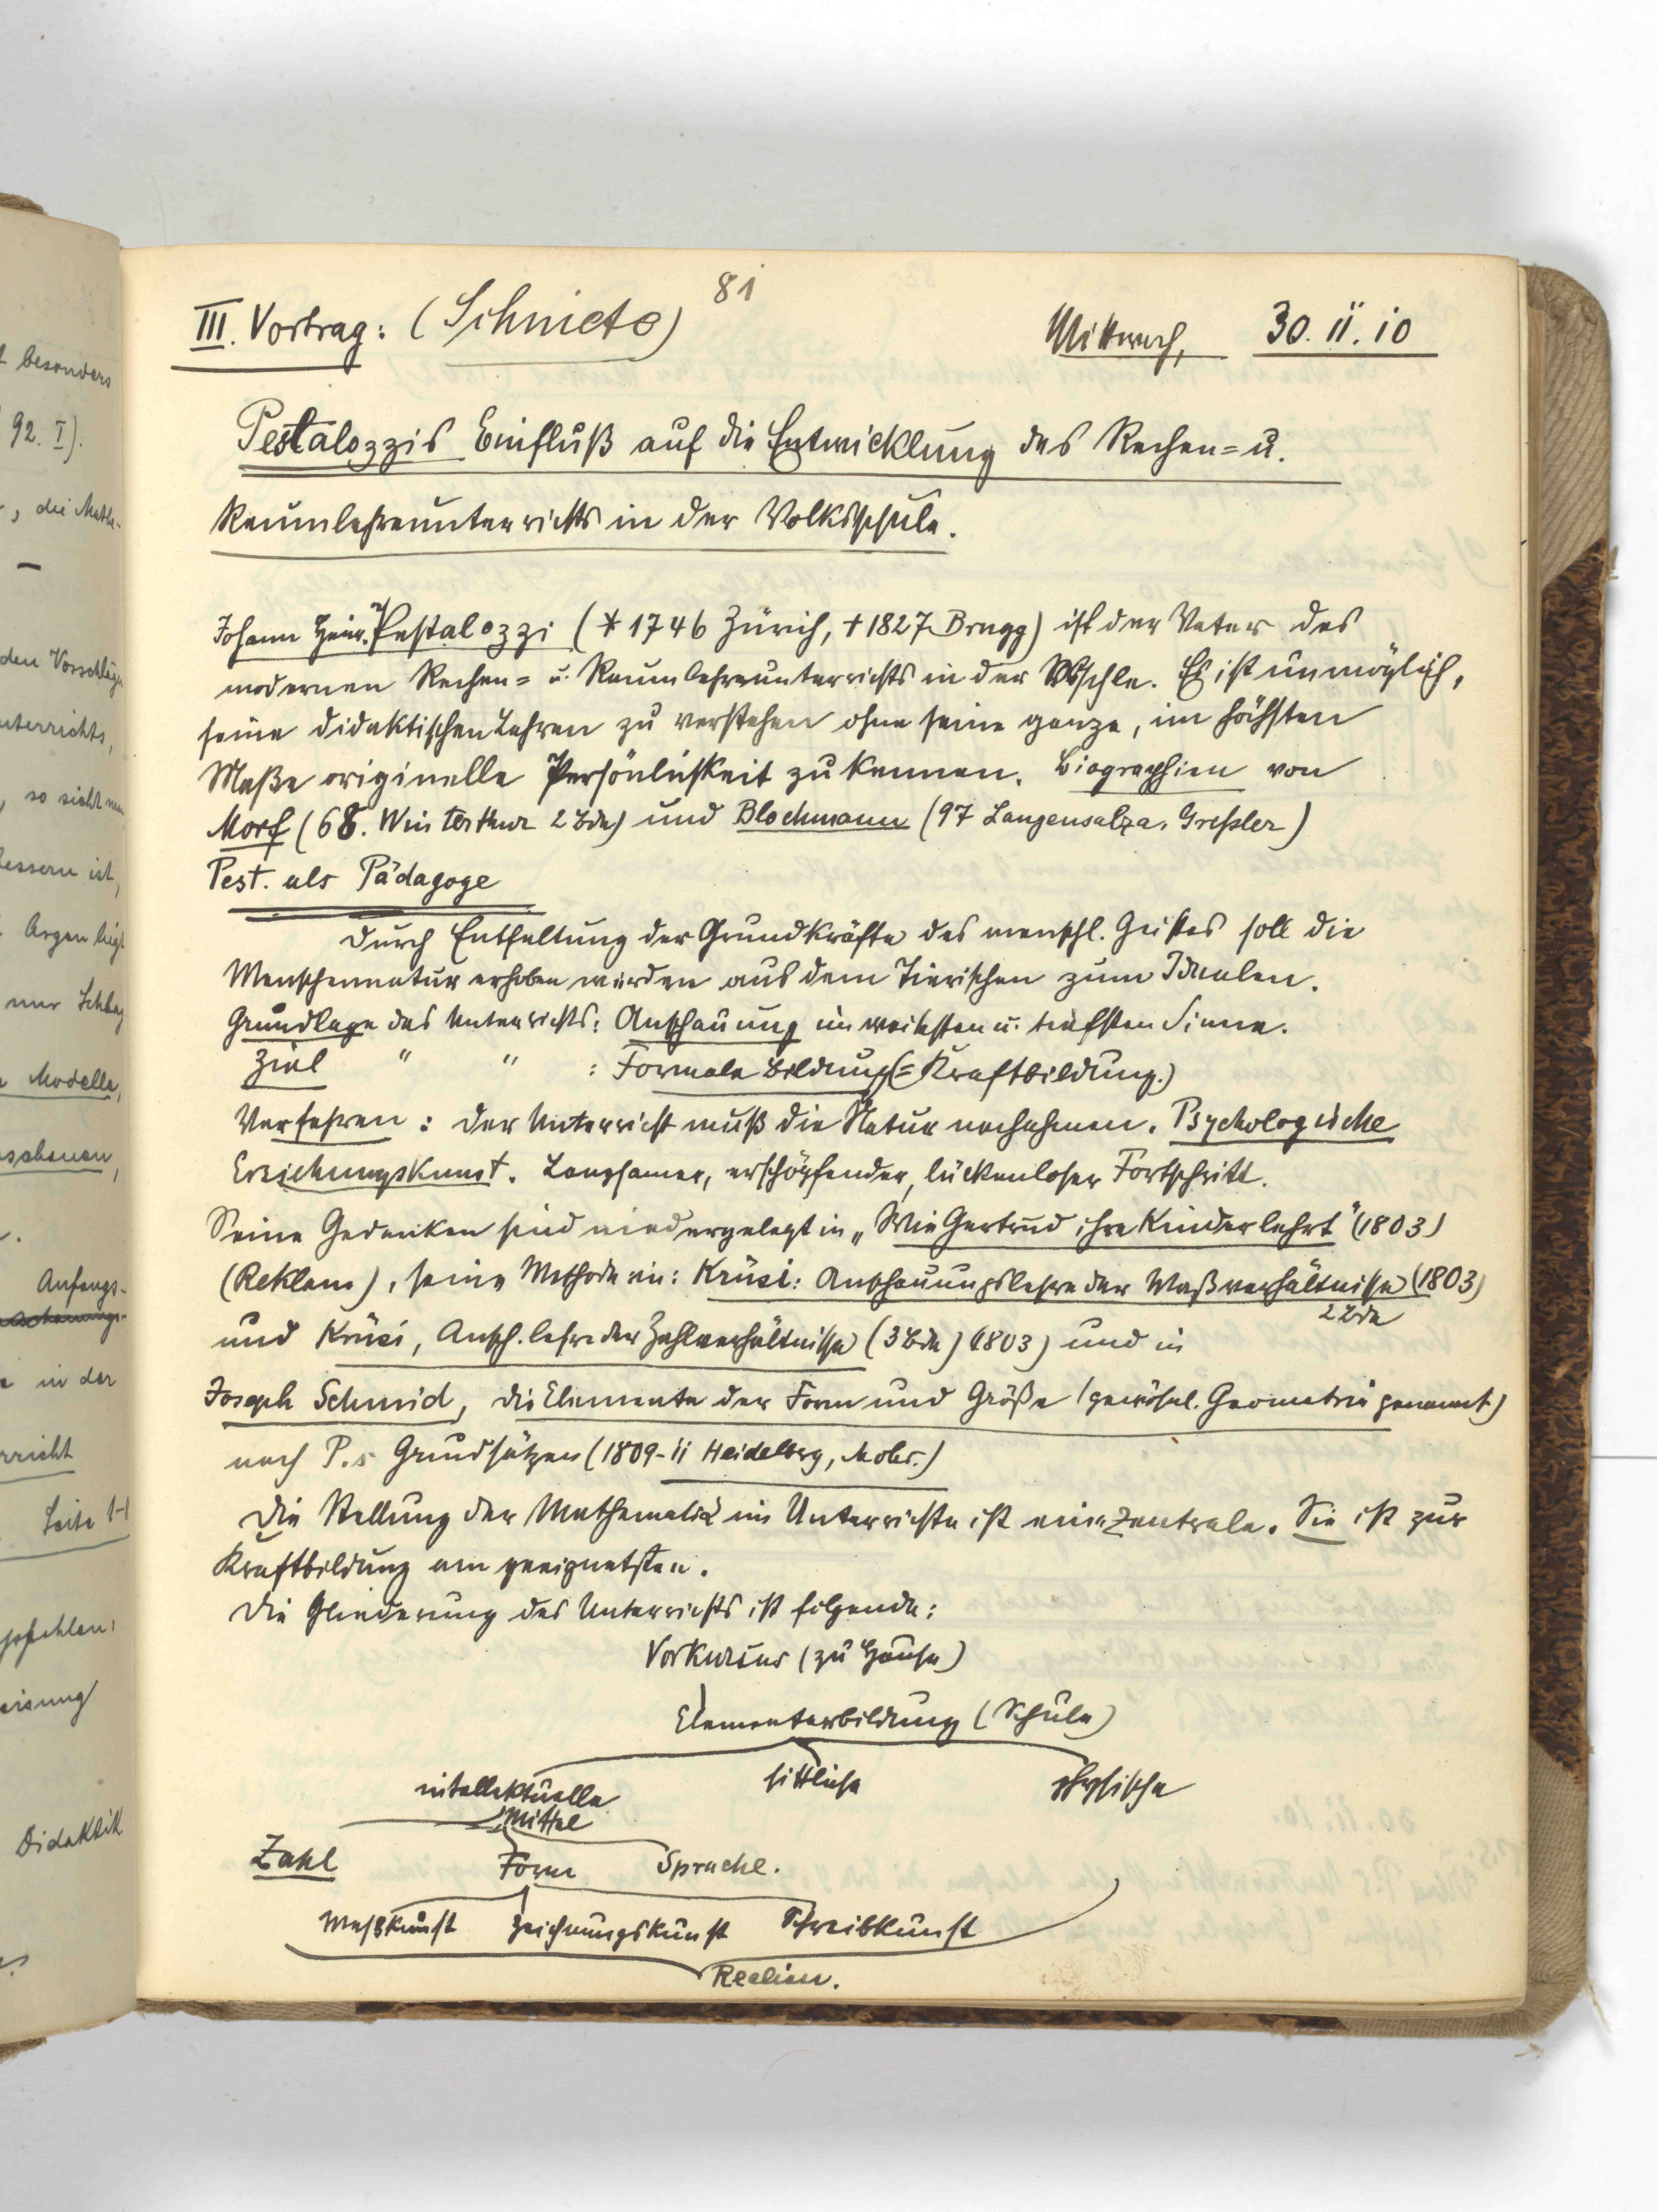 81
III. Vortrag: (Schnicte) Mittwoch, 30. 11. 10
Pestalozzis Einfluß auf die Entwicklung des Rechen= u.
Raumlehreunterrichts in der Volksschule.
Johann Heinr. Pestalozzi (* 1746 Zürich, † 1827 Brugg) ist der Vater des
modernen Rechen= u. Raumlehreunterrichts in der Vschle. Es ist unmöglich,
seine didaktischen Lehren zu verstehen ohne seine ganze, im höchsten
Maße originelle Persönlichkeit zu kennen. Biographien von
Morf (68. Winterthur 2 Bde) und Blochmann (97 Langensalza, Greßler)
Pest. als Pädagoge
Durch Entfaltung der Grundkräfte des menschl. Geistes soll die
Menschennatur erhoben werden aus dem Tierischen zum Idealen.
Grundlage des Unterrichts: Anschauung im weitesten u. tiefsten Sinne.
Ziel " " : Formale Bildung (= Kraftbildung.)
Verfahren: Der Unterricht muß die Natur nachahmen. Psychologische
Erziehungskunst. Langsamer, erschöpfender, lückenloser Fortschritt.
Seine Gedanken sind niedergelegt in „Wie Gertrud ihre Kinder lehrt" (1803)
(Reklam), seine Methode in: Krüsi: Anschauungslehre der Maßverhältnisse (1803)
2 Bde
und Krüsi, Ansch.lehre der Zahlverhältnisse (3 Bde) (1803) und in
Joseph Schmid, die Elemente der Form und Größe (gewöhnl. Geometrie genannt)
nach P.s Grundsätzen (1809-11 Heidelberg, Mohr.)
Die Stellung der Mathematik im Unterrichte ist eine zentrale. Sie ist zur
Kraftbildung am geeignetsten.
Die Gliederung des Unterrichts ist folgende:
Vorkursus (zu Hause)
Elementarbildung (Schule)
intellektuelle sittliche physische
Mittel
Zahl Form Sprache.
Meßkunst Zeichnungskunst Schreibkunst
Realien.
besonders
92. I).
, die Mathe-
den Vorschläge
unterrichts,
, so sieht man
bessern ist,
Argen liegt
nur Schlag
Modelle,
Anfangs-
in der
Seite 1-1
Didaktik